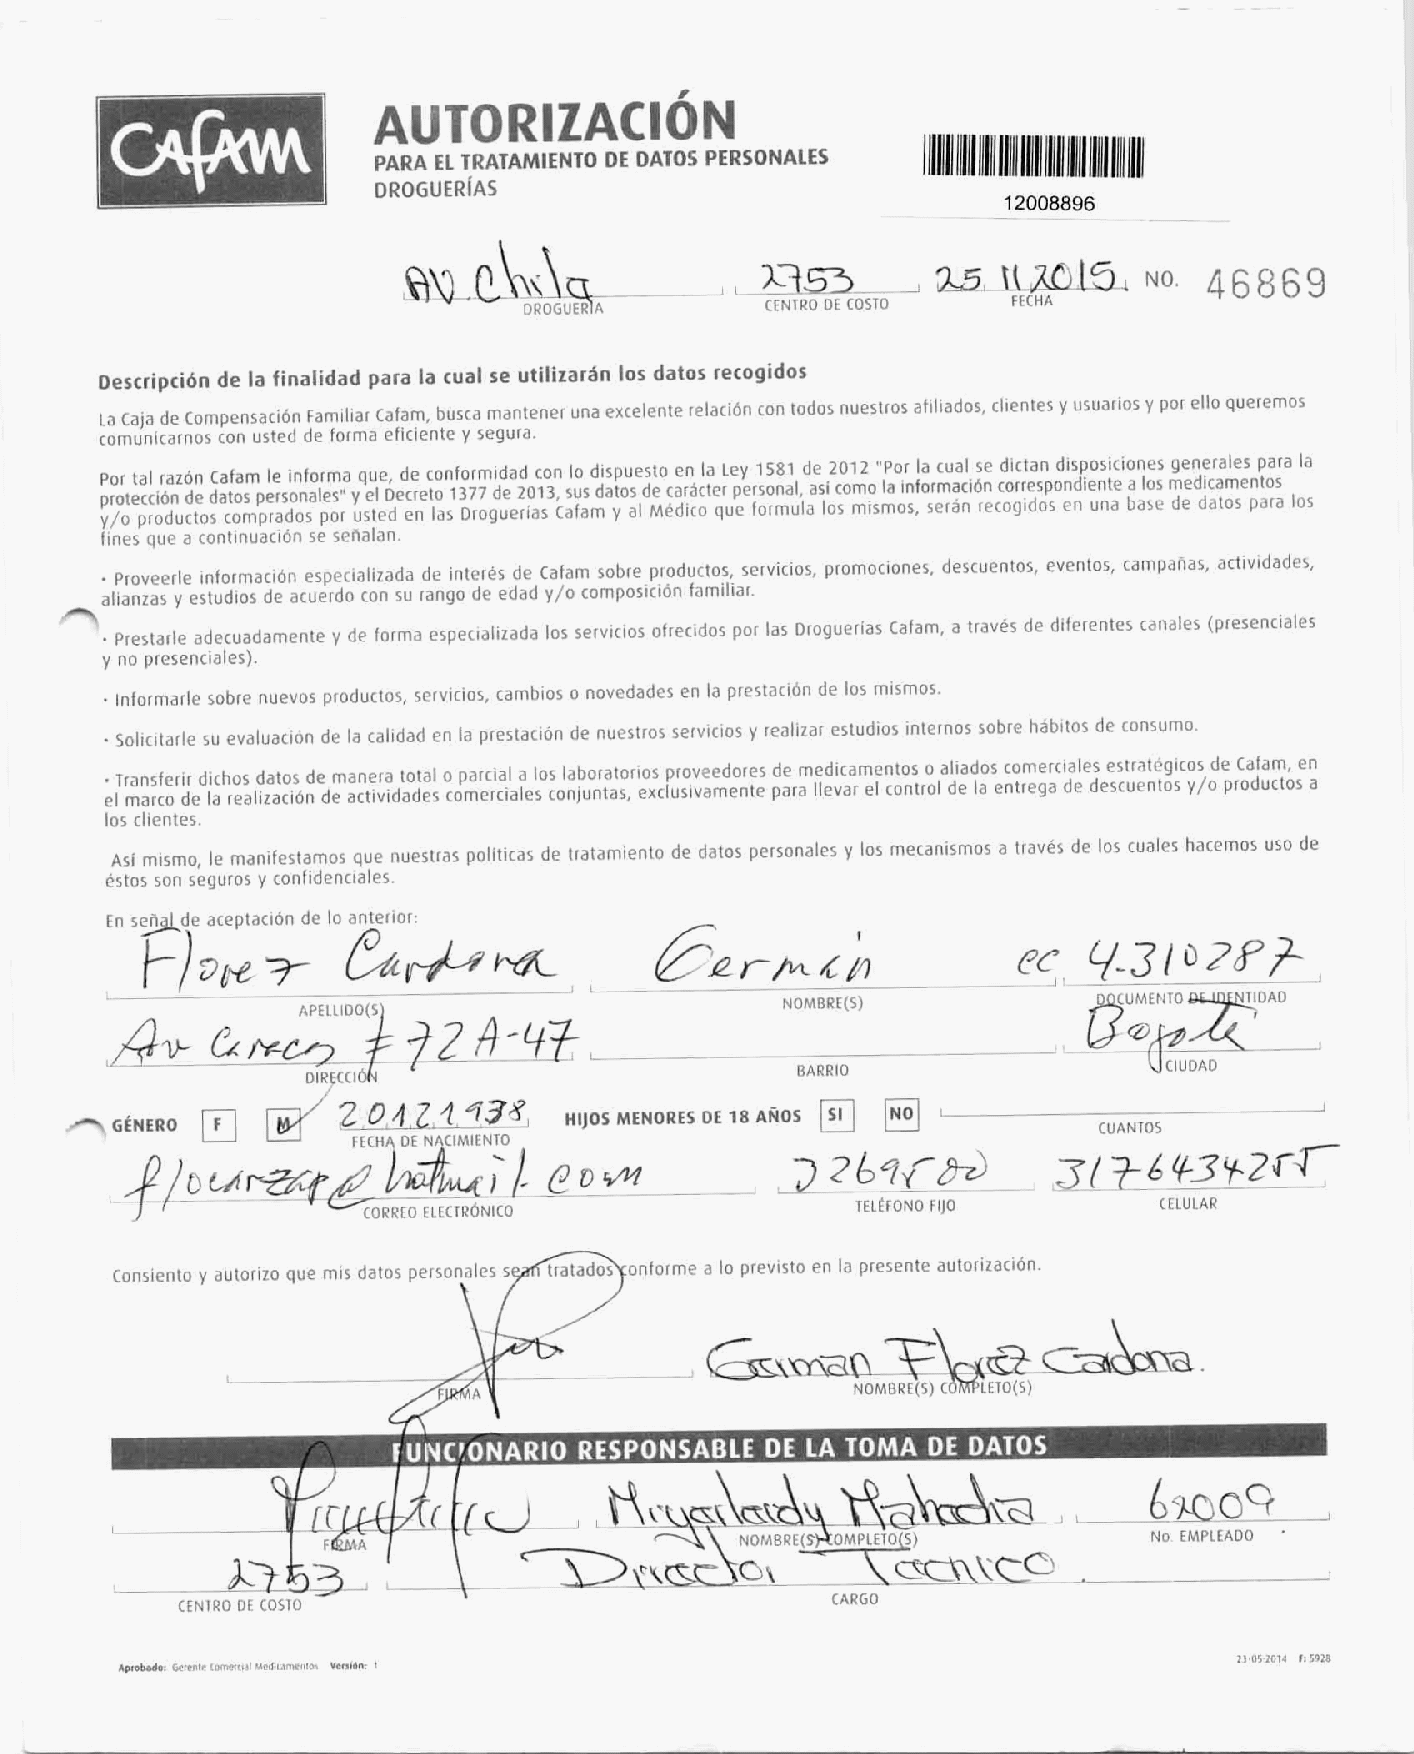 CAFAM
AUTORIZACIÓN
PARA EL TRATAMIENTO DE DATOS PERSONALES
DROGUERÍAS
12008896
AV. Chile 2753 25 11 2015 NO. 46869
DROGUERÍA CENTRO DE COSTO FECHA
Descripción de la finalidad para la cual se utilizarán los datos recogidos
La Caja de Compensación Familiar Cafam, busca mantener una excelente relación con todos nuestros afiliados, clientes y usuarios y por ello queremos
comunicarnos con usted de forma eficiente y segura.
Por tal razón Cafam le informa que, de conformidad con lo dispuesto en la Ley 1581 de 2012 "Por la cual se dictan disposiciones generales para la
protección de datos personales" y el Decreto 1377 de 2013, sus datos de carácter personal, así como la información correspondiente a los medicamentos
y/o productos comprados por usted en las Droguerías Cafam y al Médico que formula los mismos, serán recogidos en una base de datos para los
fines que a continuación se señalan.
· Proveerle información especializada de interés de Cafam sobre productos, servicios, promociones, descuentos, eventos, campañas, actividades,
alianzas y estudios de acuerdo con su rango de edad y/o composición familiar.
· Prestarle adecuadamente y de forma especializada los servicios ofrecidos por las Droguerías Cafam, a través de diferentes canales (presenciales
y no presenciales).
· Informarle sobre nuevos productos, servicios, cambios o novedades en la prestación de los mismos.
· Solicitarle su evaluación de la calidad en la prestación de nuestros servicios y realizar estudios internos sobre hábitos de consumo.
· Transferir dichos datos de manera total o parcial a los laboratorios proveedores de medicamentos o aliados comerciales estratégicos de Cafam, en
el marco de la realización de actividades comerciales conjuntas, exclusivamente para llevar el control de la entrega de descuentos y/o productos a
los clientes.
Así mismo, le manifestamos que nuestras políticas de tratamiento de datos personales y los mecanismos a través de los cuales hacemos uso de
éstos son seguros y confidenciales.
En señal de aceptación de lo anterior:
Florez Cardona Germán cc 4.310287
APELLIDO(S) NOMBRE(S) DOCUMENTO DE IDENTIDAD
Av Caracas # 72A-47 Bogotá
DIRECCIÓN BARRIO CIUDAD
GÉNERO F M 20121938 HIJOS MENORES DE 18 AÑOS SI NO
FECHA DE NACIMIENTO CUANTOS
flocarzap@hotmail.com 3269500 3176434255
CORREO ELECTRÓNICO TELÉFONO FIJO CELULAR
Consiento y autorizo que mis datos personales sean tratados conforme a lo previsto en la presente autorización.
German Florez Cardona.
FIRMA NOMBRE(S) COMPLETO(S)
FUNCIONARIO RESPONSABLE DE LA TOMA DE DATOS
62009
FIRMA NOMBRE(S) COMPLETO(S) No. EMPLEADO
2753 Director Tecnico
CENTRO DE COSTO CARGO
Aprobado: Gerente Comercial Medicamentos Versión: 1 23-05-2014 F: 5928